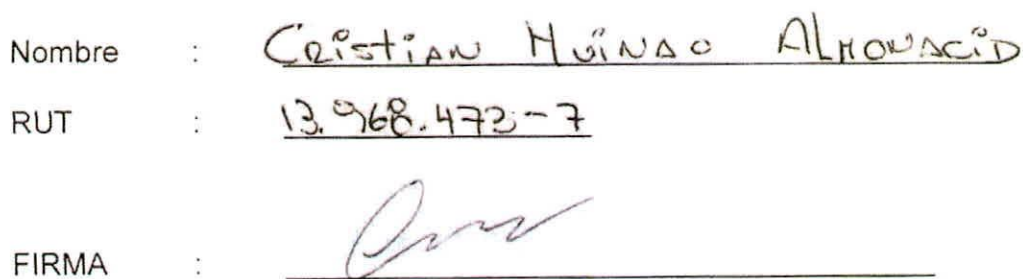 Nombre : Cristian Huinao Almonacid
RUT : 13.968.473-7
FIRMA :